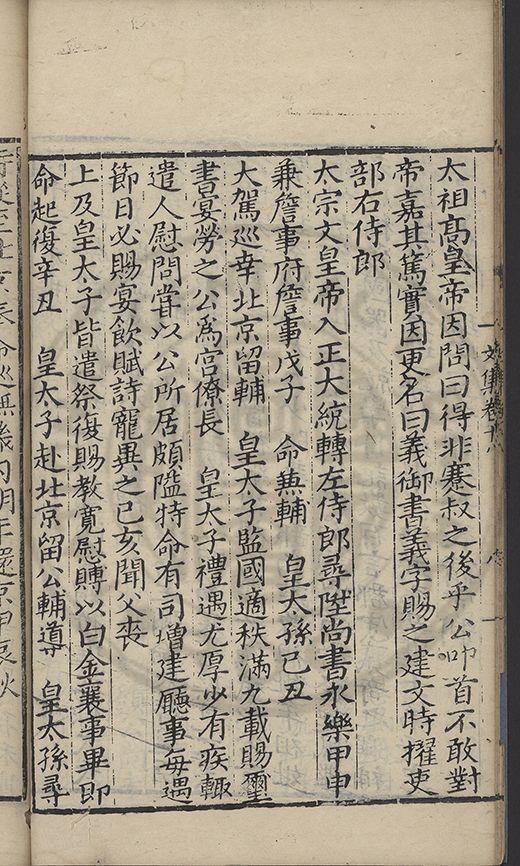 太祖高皇帝因問曰得非蹇叔之後乎公叩首不敢對
帝嘉其篤實因更名曰義御書義字賜之建文時擢吏
部右侍郎
大宗文皇帝入正大統轉左侍郎尋陞尚書永樂甲申
兼詹事府詹事戊子　命兼輔　皇太孫己丑
大駕巡幸北京留輔　皇太子監國適秩滿九載賜璽
書宴勞之公爲宮僚長　皇太子禮遇尤厚少有疾輒
遣人慰問嘗以公所居頗隘特命有司增建廳事每遇
節日必賜宴飲賦詩寵異之己亥聞父喪
上及皇太子皆遣祭復賜敎寬慰賻以白金襄事畢即
命起復辛丑　皇太子赴北京留公輔導　皇太孫尋
文集卷十八